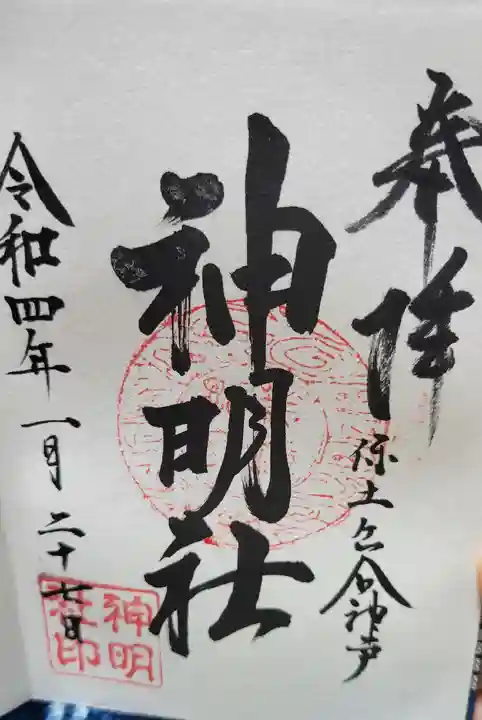 奉拝
保土ヶ谷神戸
神明社
神明
社印
令和四年一月二十七日